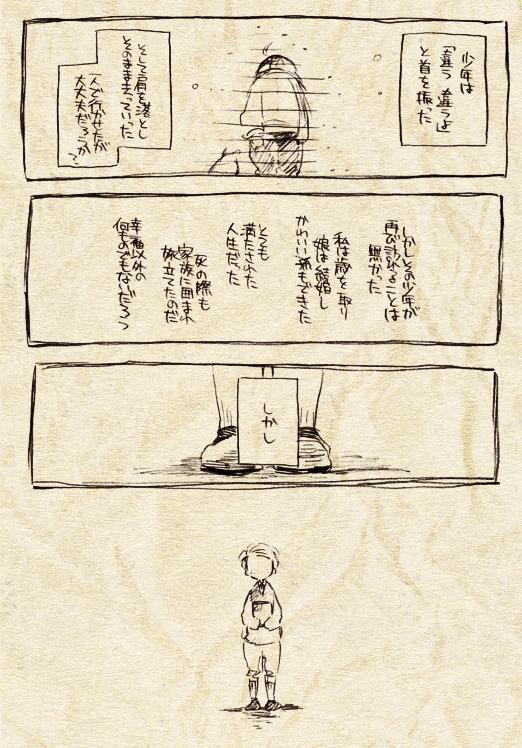 少年は
「違う 違うよ」
と首を振った
そして肩を落とし
そのまま去っていった
一人で行かせたが
大丈夫だろうか?
しかしその少年が
再び訪れることは
無かった
私は歳を取り
娘は結婚し
かわいい孫もできた
とても
満たされた
人生だった
死の際も
家族に囲まれ
旅立てたのだ
幸福以外の
何ものでもないだろう
しかし